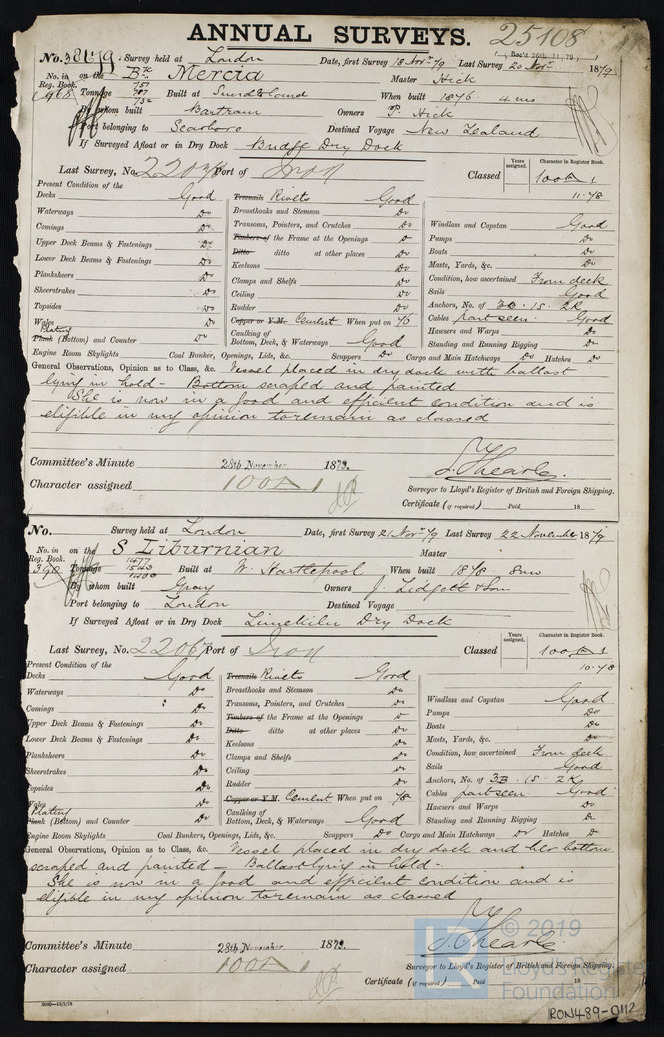 ANNUAL SURVEYS. 25108
Rec'd 26th 11/79
No. Survey held at London Date, first Survey 18 Novr 79 Last Survey 20 Novr 1879
No. in on the Bk Mercia Master Hick
Reg. Book. 757
968 Tonnage 707 Built at Sunderland When built 1876 4 mo
732
By whom built Bartram Owners P. Hick
Port belonging to Scarboro Destined Voyage New Zealand
If Surveyed Afloat or in Dry Dock Bridge Dry Dock
Last Survey, No. Port of Iron Classed Years assigned. Character in Register Book. 100A 1
11-78
Present Condition of the
Decks Good Treenails Rivets Good
Waterways Do Breasthooks and Stemson Do Windlass and Capstan Good
Comings Do Transoms, Pointers, and Crutches Do Pumps Do
Upper Deck Beams & Fastenings Do Timbers of the Frame at the Openings Boats Do
Lower Deck Beams & Fastenings Do Ditto ditto at other places Do Masts, Yards, &c. Do
Planksheers Do Keelsons Do Condition, how ascertained From deck
Sheerstrakes Do Clamps and Shelfs Do Sails Good
Topsides Do Ceiling Do Anchors, No. of 3B. 1S. 2K
Wales Do Rudder Do Cables part seen. Good
Plating Copper or Y.M. Cement When put on 76 Hawsers and Warps Do
Plank (Bottom) and Counter Do Caulking of Bottom, Deck, & Waterways Good Standing and Running Rigging Do
Engine Room Skylights Coal Bunker, Openings, Lids, &c. Scuppers Do Cargo and Main Hatchways Do Hatches Do
General Observations, Opinion as to Class, &c. Vessel placed in dry dock with ballast
lying in hold - Bottom scraped and painted
She is now in a good and efficient condition and is
eligible in my opinion to remain as classed
Committee's Minute 28th November 1879.
Character assigned 100A 1
S. Thearle.
Surveyor to Lloyd's Register of British and Foreign Shipping.
Certificate (if required) Paid 18
No. Survey held at London Date, first Survey 21 Novr 79 Last Survey 22 November 1879
No. in on the S Liburnian Master
Reg. Book. 1477
390 Tonnage 1540 Built at W. Hartlepool When built 1878 8mo
1400
By whom built Gray Owners J. Lidgett & Son
Port belonging to London Destined Voyage
If Surveyed Afloat or in Dry Dock Limekiln Dry Dock
Last Survey, No. 22067 Port of Iron Classed Years assigned. Character in Register Book. 100A 1
10-78
Present Condition of the
Decks Good Treenails Rivets Good
Waterways Do Breasthooks and Stemson Do Windlass and Capstan Good
Comings Do Transoms, Pointers, and Crutches Do Pumps Do
Upper Deck Beams & Fastenings Do Timbers of the Frame at the Openings Boats Do
Lower Deck Beams & Fastenings Do Ditto ditto at other places Do Masts, Yards, &c. Do
Planksheers Do Keelsons Do Condition, how ascertained From deck
Sheerstrakes Do Clamps and Shelfs Do Sails Good
Topsides Do Ceiling Do Anchors, No. of 3B. 1S. 2K
Wales Do Rudder Do Cables part seen Good
Plating Copper or Y.M. Cement When put on 78 Hawsers and Warps Do
Plank (Bottom) and Counter Do Caulking of Bottom, Deck, & Waterways Good Standing and Running Rigging Do
Engine Room Skylights Coal Bunkers, Openings, Lids, &c. Scuppers Do Cargo and Main Hatchways Do Hatches Do
General Observations, Opinion as to Class, &c. Vessel placed in dry dock and her bottom
scraped and painted - Ballast lying in hold -
She is now in a good and efficient condition and is
eligible in my opinion to remain as classed
Committee's Minute 28th November 1879.
Character assigned 100A 1
S. Thearle
Surveyor to Lloyd's Register of British and Foreign Shipping.
Certificate (if required) Paid 18
© 2019
Lloyd's Register
Foundation
LR
IRON489-0112